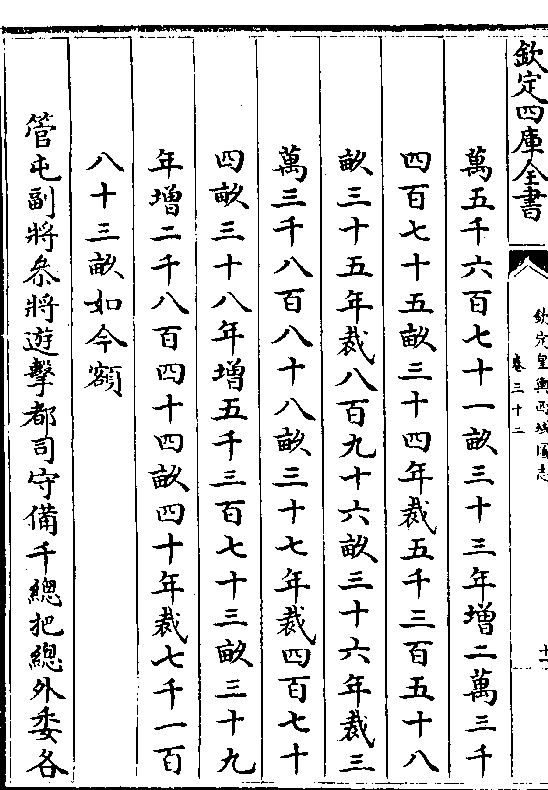 欽定四庫全書
欽定皇輿西域圖志
卷三十二
十一
萬五千六百七十一畝三十三年增二萬三千
四百七十五畝三十四年裁五千三百五十八
畝三十五年裁八百九十六畝三十六年裁三
萬三千八百八十八畝三十七年裁四百七十
四畝三十八年增五千三百七十三畝三十九
年增二千八百四十四畝四十年裁七千一百
八十三畝如今額
管屯副將叅將遊擊都司守備千總把總外委各